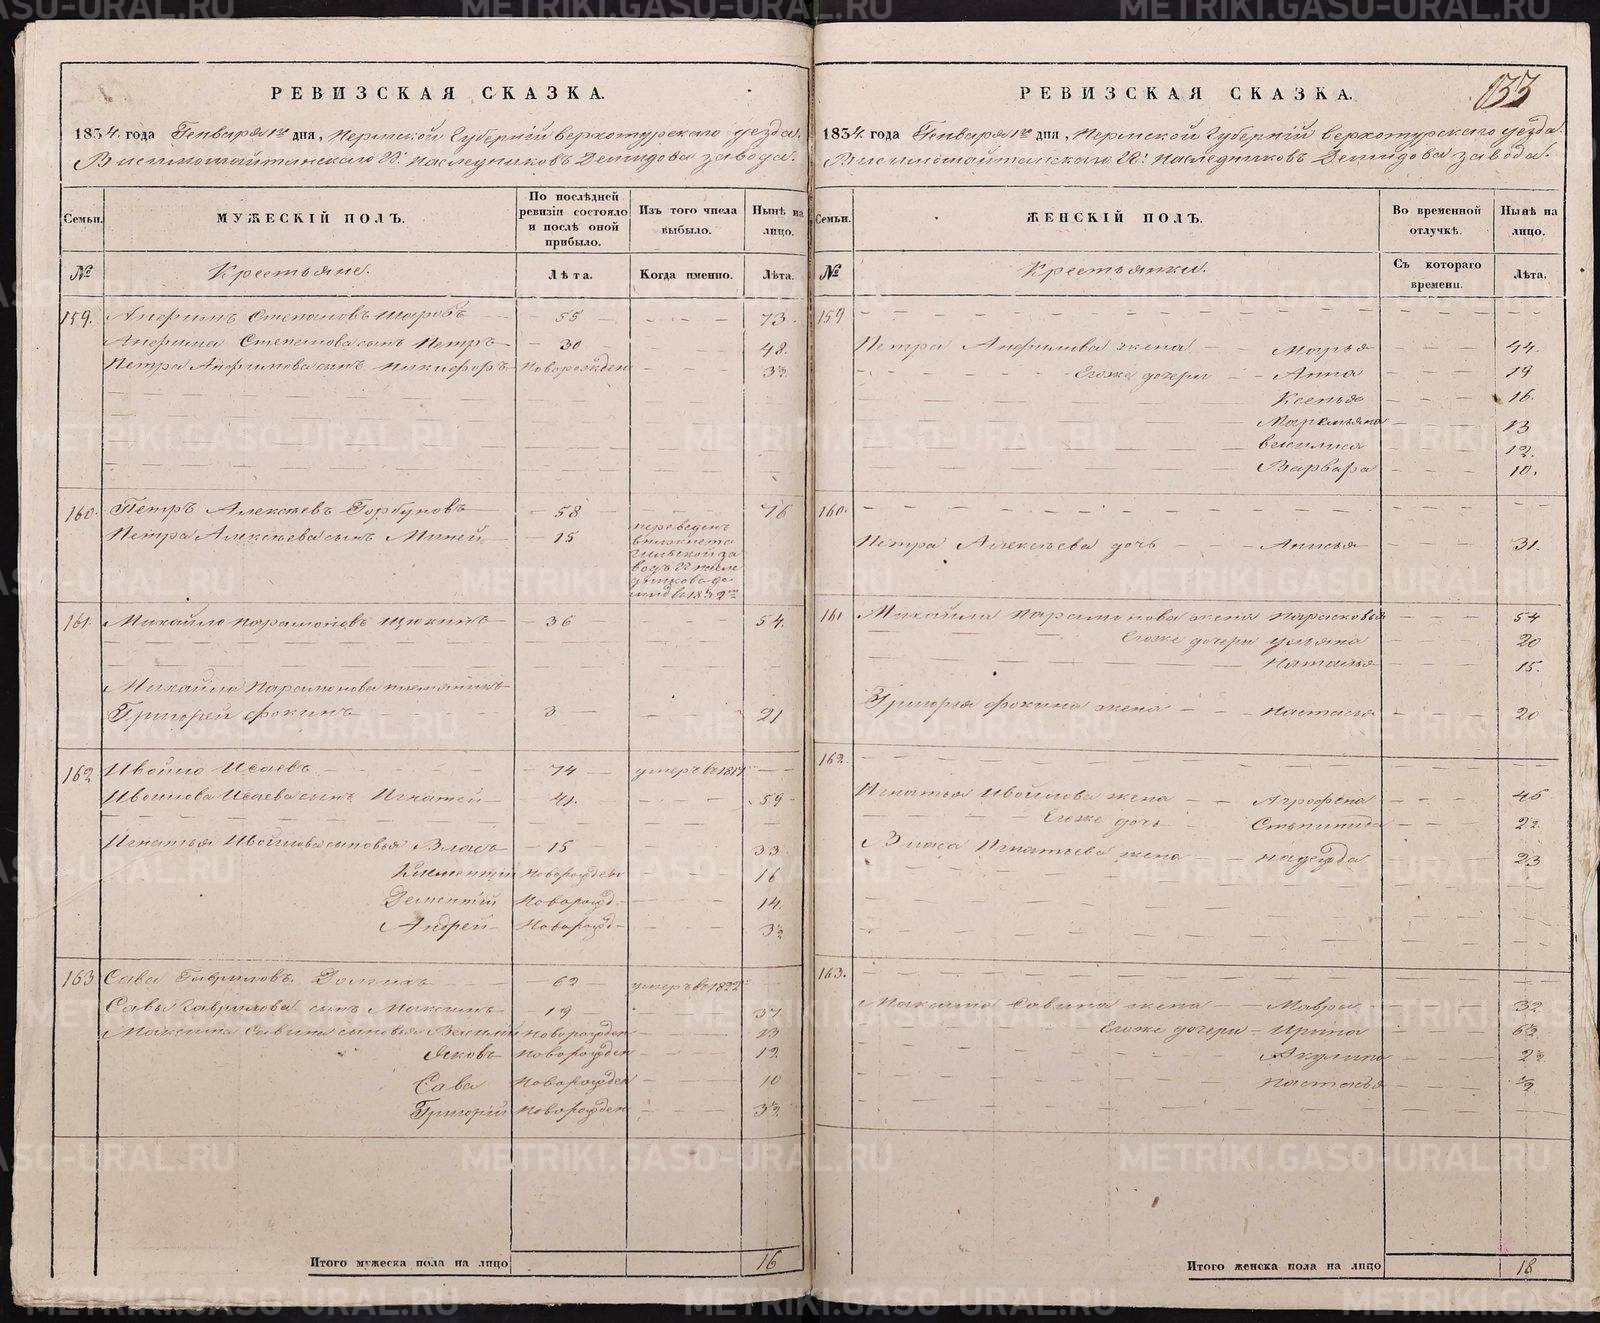 РЕВИЗСКАЯ СКАЗКА.
1834. года Генваря 1го дня, Пермской Губернiй верхотурскаго уезда.
Висимошайтанскаго Г: наследниковъ Демидова завода.
Семьи.
МУЖЕСКIЙ ПОЛЪ.
По послѣдней ревизiи состояло и послѣ оной прибыло.
Изъ того числа выбыло.
Нынѣ на лицо.
№
Крестьяне.
Лѣта.
Когда именно.
Лѣта.
159. Анфимъ Степановъ 55 73.
Анфима Степанова сынъ Петръ 30 48.
Петра Анфимова сынъ Никифоръ новорожден
160. Петръ Алексѣевъ Горбуновъ 58 76
Петра Алексѣева сынъ Миней 15
переведенъ
в нижнета
гильской за
водъ Г насле
дников де
161. Михайло Парамоновъ 36 54.
Михайла Парамонова племянникъ
Григорей фокинъ 3 21
162 Ивойло Исаевъ 74 умеръ въ
Ивоилова Исаева сынъ Игнатей 41. 59
Игнатья Ивойлова сыновья Власъ 15 33
Климентiй новорожден 16
Дементiй Новорожд 14.
Андрей Новорожд
163 Сава Гавриловъ 62 умеръ въ 1822
Савы Гаврилова сынъ Максимъ 19 37
Максима Савина сыновья Василий новорожден 13
Яковъ новорожден 12
Сава новорожден 10
Григорiй новорожден
Итого мужеска пола на лицо 16
133
РЕВИЗСКАЯ СКАЗКА.
1834. года Генваря 1го дня, Пермской Губернiй верхотурскаго уезда.
Висимошайтанскаго Г: наследниковъ Демидова завода.
Семьи.
ЖЕНСКIЙ ПОЛЪ.
Во временной отлучкѣ.
Нынѣ на лицо.
№
Крестьянки.
Съ котораго времени.
Лѣта.
159
Петра Анфимова жена Марья 44.
Егоже дочери Анна 19
Ксенья 16.
13
василиса 12.
Варвара 10.
160.
Петра Алексѣева дочь Анисья 31.
161 Михайла Парамонова жена Парасковья 54
Егоже дочери ульяна 20
Наталья 15.
Григорья фокина жена настасья 20
162.
Игнатья Ивойлова жена Агрофена
Егоже дочь Степанида
Власа Игнатьева жена надежда 23
163.
Максима Савина жена Мавра 32
Егоже дочери Ирина
Акулина
настасья
Итого женска пола на лицо 18
METRIKI.GASO-URAL.RU